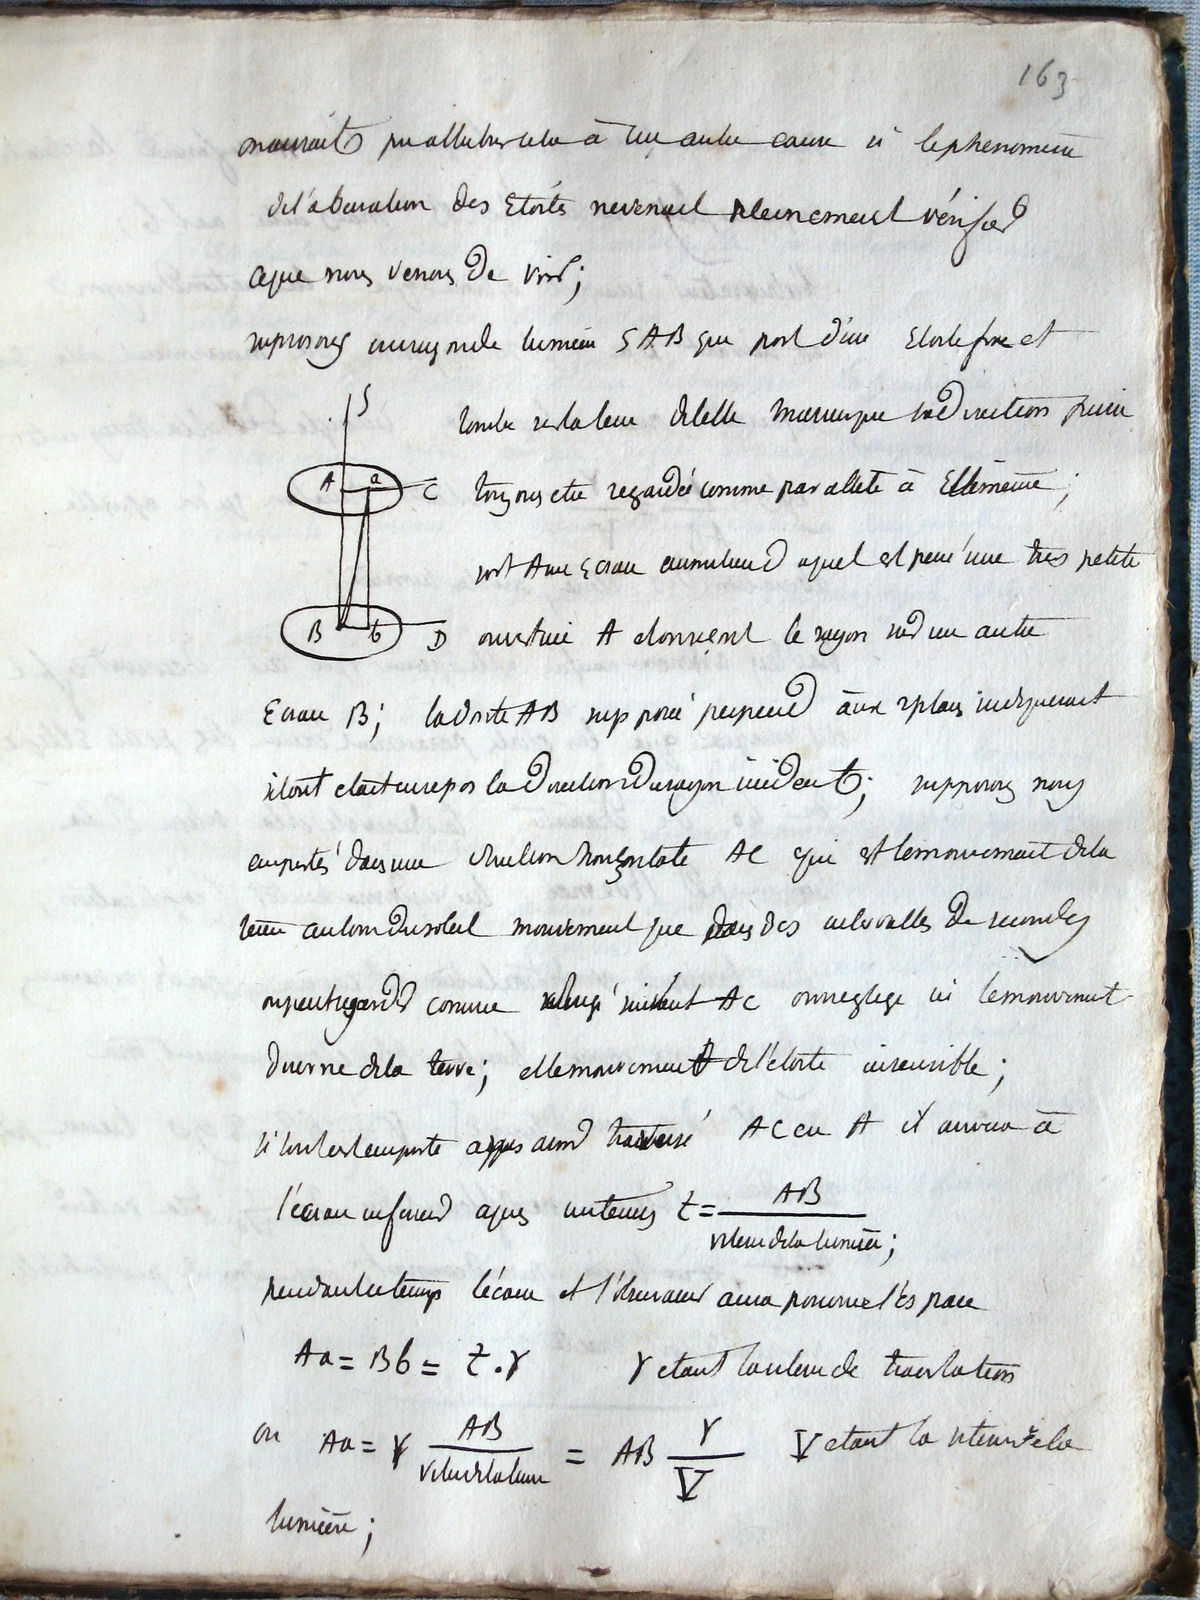 163
on aurait pu attribuer cela à une autre cause si le phenomene
de l'aberration des Etoiles ne venait pleinement vérifier
ce que nous venons de voir;
supposons un rayon de lumiere SAB qui part d'une Etoile fixe et
S
tombe sur la terre de telle maniere que sa direction puisse
A a C
toujours etre regardée comme parallele à Elle même;
soit A un Ecran au milieu duquel est percé une tres petite
B b D
ouverture A et on reçoit le rayon sur un autre
Ecran B; la droite AB supposée perpend aux 2 plans indiquerait
si tout etait en repos la Direction Du rayon incident; supposons nous
emportés dans une direction horizontale AC qui est le mouvement de la
terre autour du soleil mouvement que dans des intervalles de secondes
on peut regarder comme suivant AC on neglige ici le mouvement
Diurne de la terre; et le mouvement de l'étoile insensible;
si tout est emporté apres avoir traversé AC en A il arrivera à
l'écran inferieur apres un tems t = AB / vitesse de la lumiere;
pendant ce temps l'écran et l'observateur aura parcouru l'espace
Aa = Bb = t . γ γ etant la vitesse de translation
ou Aa = γ AB / vitesse de la lum = AB γ / V V etant la vitesse de la
lumière;